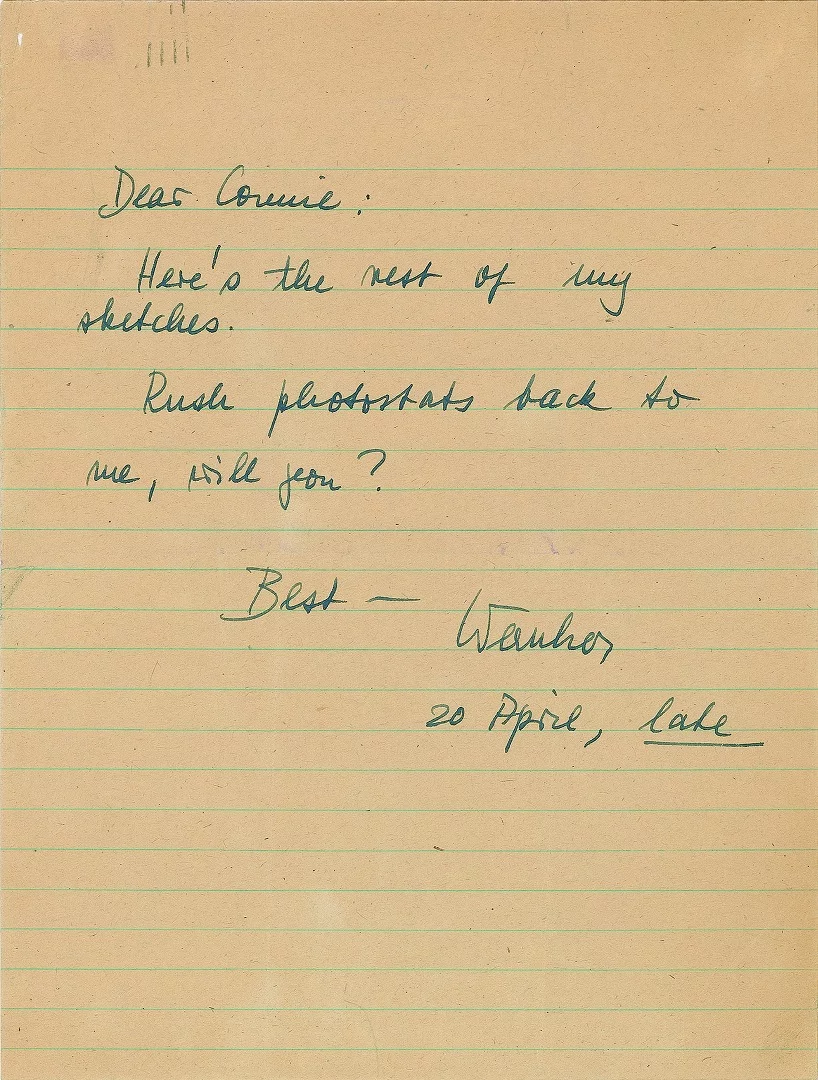 Dear Connie:
Here's the rest of my
sketches.
Rush photostats back to
me, will you?
Best —
Wernher
20 April, late